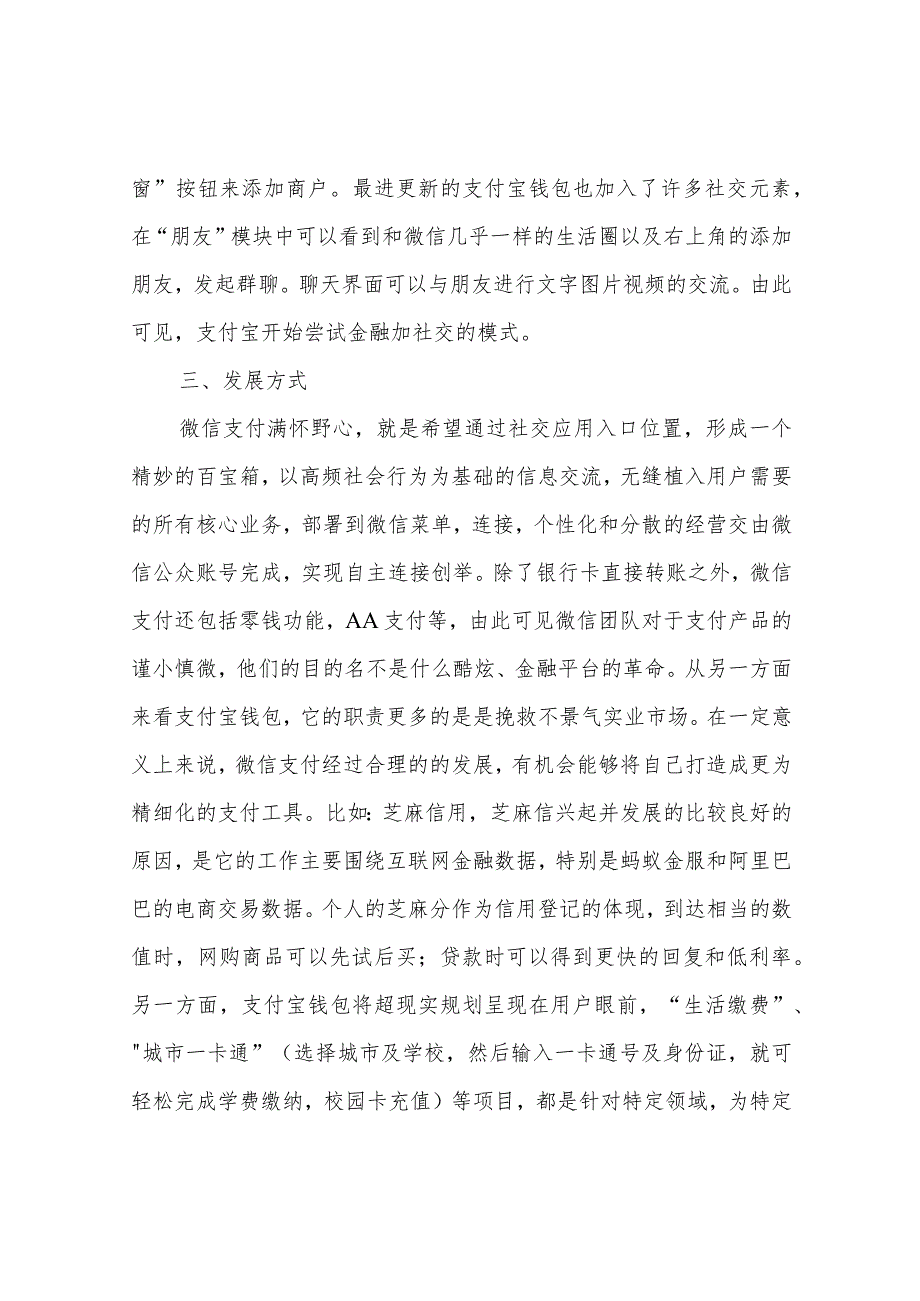 窗”按钮来添加商户。最进更新的支付宝钱包也加入了许多社交元素，
在“朋友”模块中可以看到和微信几乎一样的生活圈以及右上角的添加
朋友，发起群聊。聊天界面可以与朋友进行文字图片视频的交流。由此
可见，支付宝开始尝试金融加社交的模式。
三、发展方式
微信支付满怀野心，就是希望通过社交应用入口位置，形成一个
精妙的百宝箱，以高频社会行为为基础的信息交流，无缝植入用户需要
的所有核心业务，部署到微信菜单，连接，个性化和分散的经营交由微
信公众账号完成，实现自主连接创举。除了银行卡直接转账之外，微信
支付还包括零钱功能，AA 支付等，由此可见微信团队对于支付产品的
谨小慎微，他们的目的名不是什么酷炫、金融平台的革命。从另一方面
来看支付宝钱包，它的职责更多的是是挽救不景气实业市场。在一定意
义上来说，微信支付经过合理的的发展，有机会能够将自己打造成更为
精细化的支付工具。比如：芝麻信用，芝麻信兴起并发展的比较良好的
原因，是它的工作主要围绕互联网金融数据，特别是蚂蚁金服和阿里巴
巴的电商交易数据。个人的芝麻分作为信用登记的体现，到达相当的数
值时，网购商品可以先试后买；贷款时可以得到更快的回复和低利率。
另一方面，支付宝钱包将超现实规划呈现在用户眼前，“生活缴费”、
"城市一卡通”（选择城市及学校，然后输入一卡通号及身份证，就可
轻松完成学费缴纳，校园卡充值）等项目，都是针对特定领域，为特定